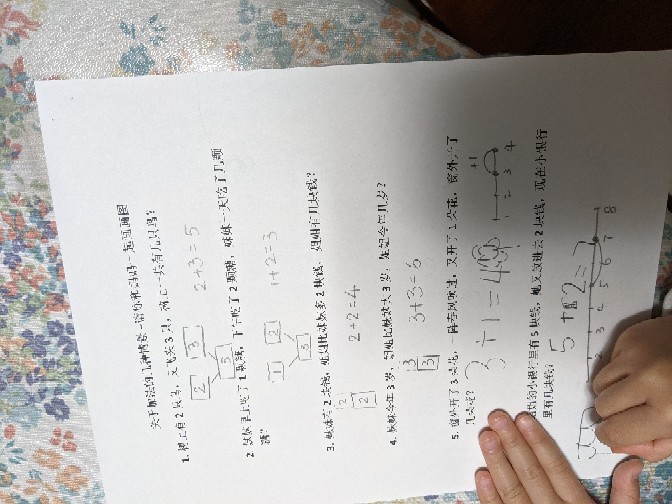 关于加法的几种情景-请你和妈妈一起画画图
1. 树上有2只鸟，又飞来3只，树上一共有几只鸟？
2 3 5 2+3=5
2. 妹妹早上吃了1颗糖，下午吃了2颗糖，妹妹一天吃了几颗
糖？
1 2 3 1+2=3
3. 妹妹有2块钱，姐姐比妹妹多2块钱，姐姐有几块钱？
2 2 2+2=4
4. 妹妹今年3岁，姐姐比妹妹大3岁，姐姐今年几岁？
3 3 3+3=6
5. 窗外开了3朵花，一阵春风吹过，又开了1朵花，窗外开了
几朵花？ 3+1=4
+1
1 2 3 4
的小银行里有5块钱，她又放进去2块钱，现在小银行
里有几块钱？ 5+2=
2 3 4 5 6 7 8